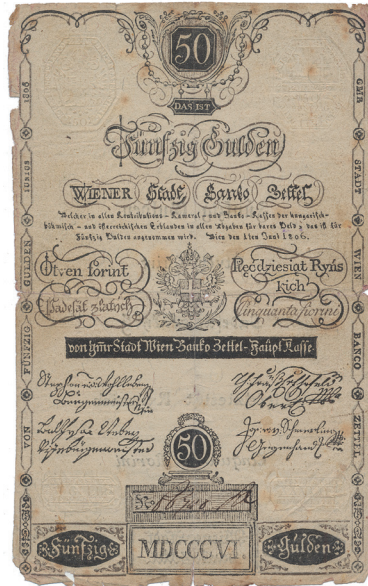 50
DAS IST
Fünfzig Gulden
WIENER Stadt Banko Zettel
Welcher in allen Kontributions - Kameral - und Banko - Kassen der hungarisch-
böhmisch - und österreichischen Erblanden in allen Abgaben für bares Geld, das ist für
Fünfzig Gulden angenommen wird. Wien den 1ten Juni 1806.
Ötven forint
Pęćdziesiat Ryńs
kich
Padesát zlatych
Cinquanta fiorini
von gmr Stadt Wien-Banko Zettel-Haupt Kasse
50
No
MDCCCVI.
Fünfzig
Gulden
VON FÜNFZIG GULDEN IUNIUS 1806
GMR STADT WIEN BANCO ZETTIL